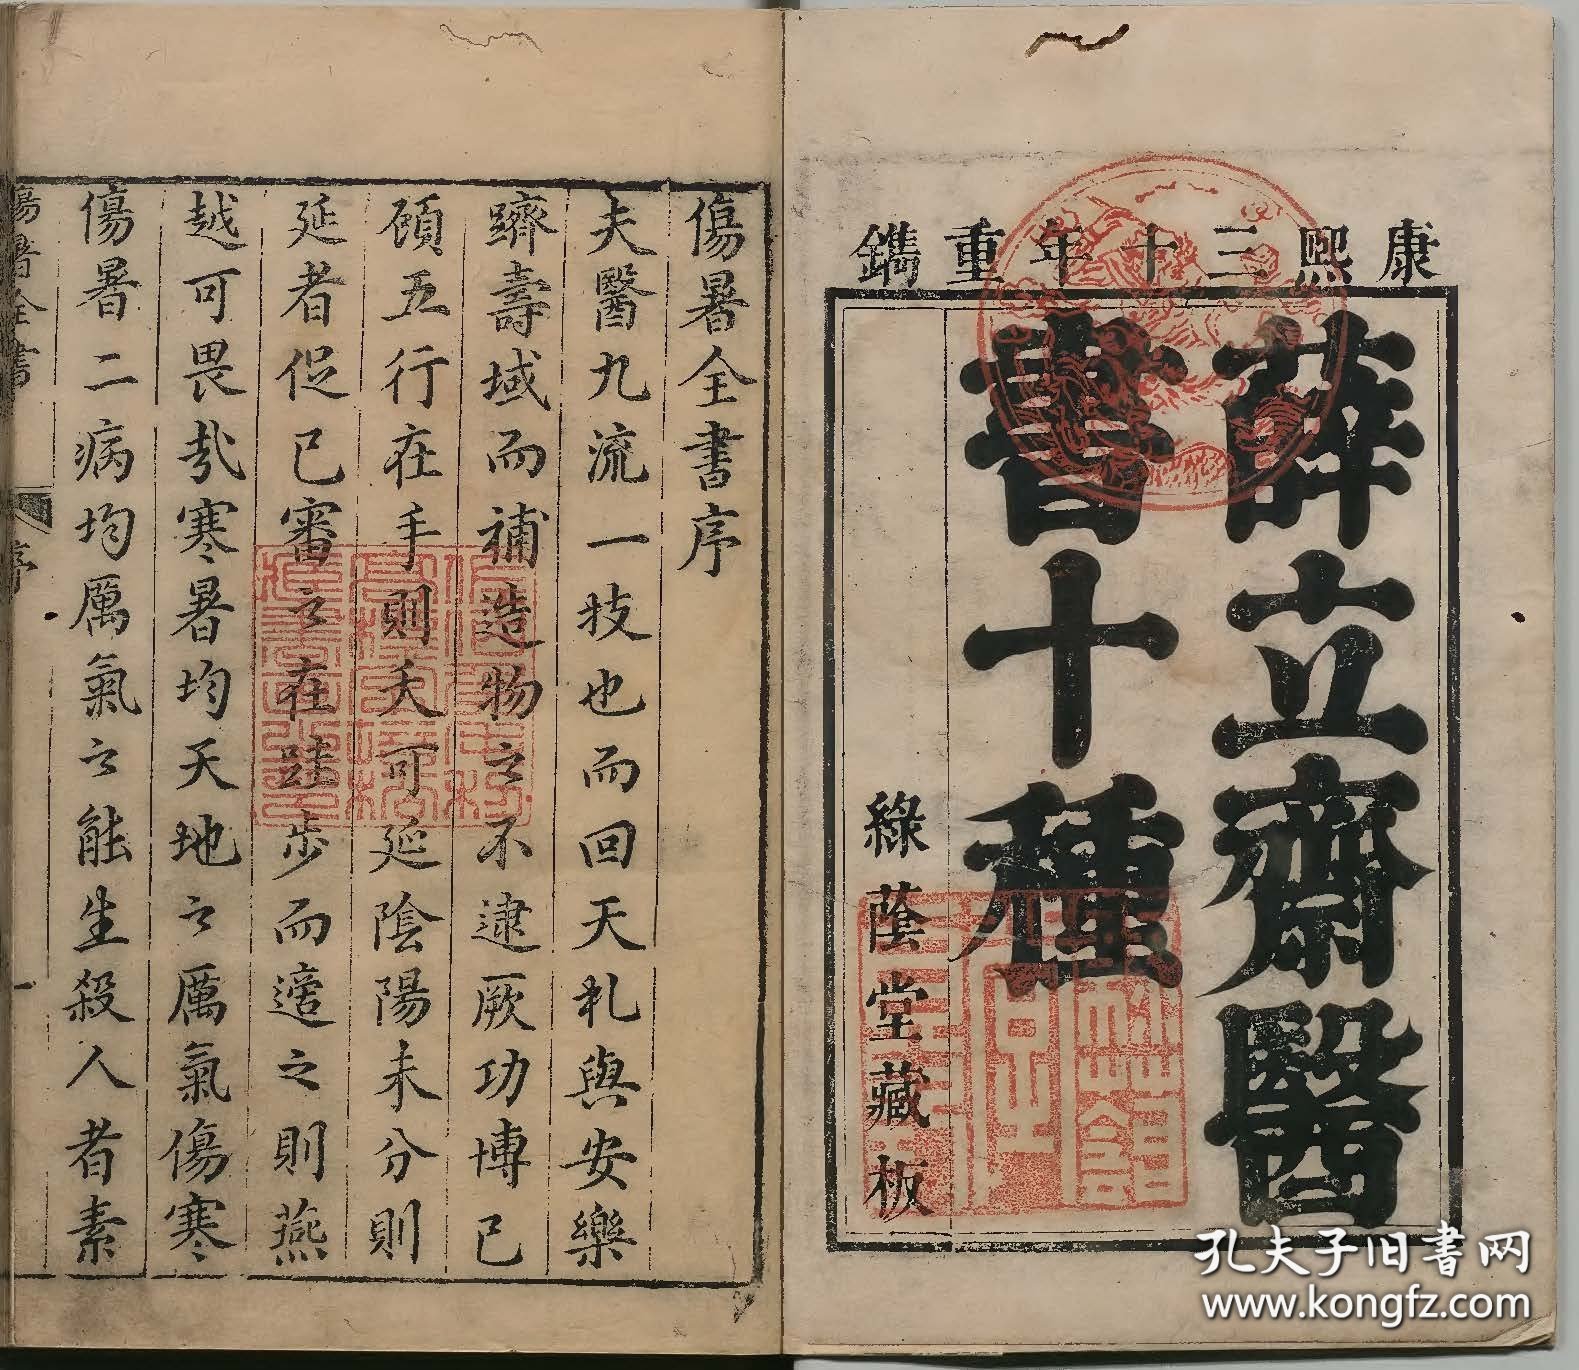 康熙三十年重鐫
薛立齋醫
書十種
綠蔭堂藏板
傷暑全書序
夫醫九流一技也而回天札與安樂
躋壽域而補造物之不逮厥功博已
頋五行在手則夭可延陰陽未分則
延者促已審之在跬步而適之則燕
越可畏哉寒暑均天地之厲氣傷寒
傷暑二病均厲氣之能生殺人者素
傷暑全書
序
一
孔夫子旧书网
www.kongfz.com